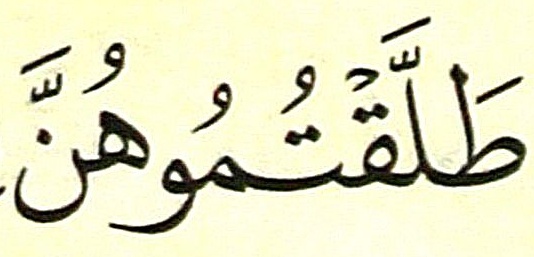 طَلَّقۡتُمُوهُنَّ